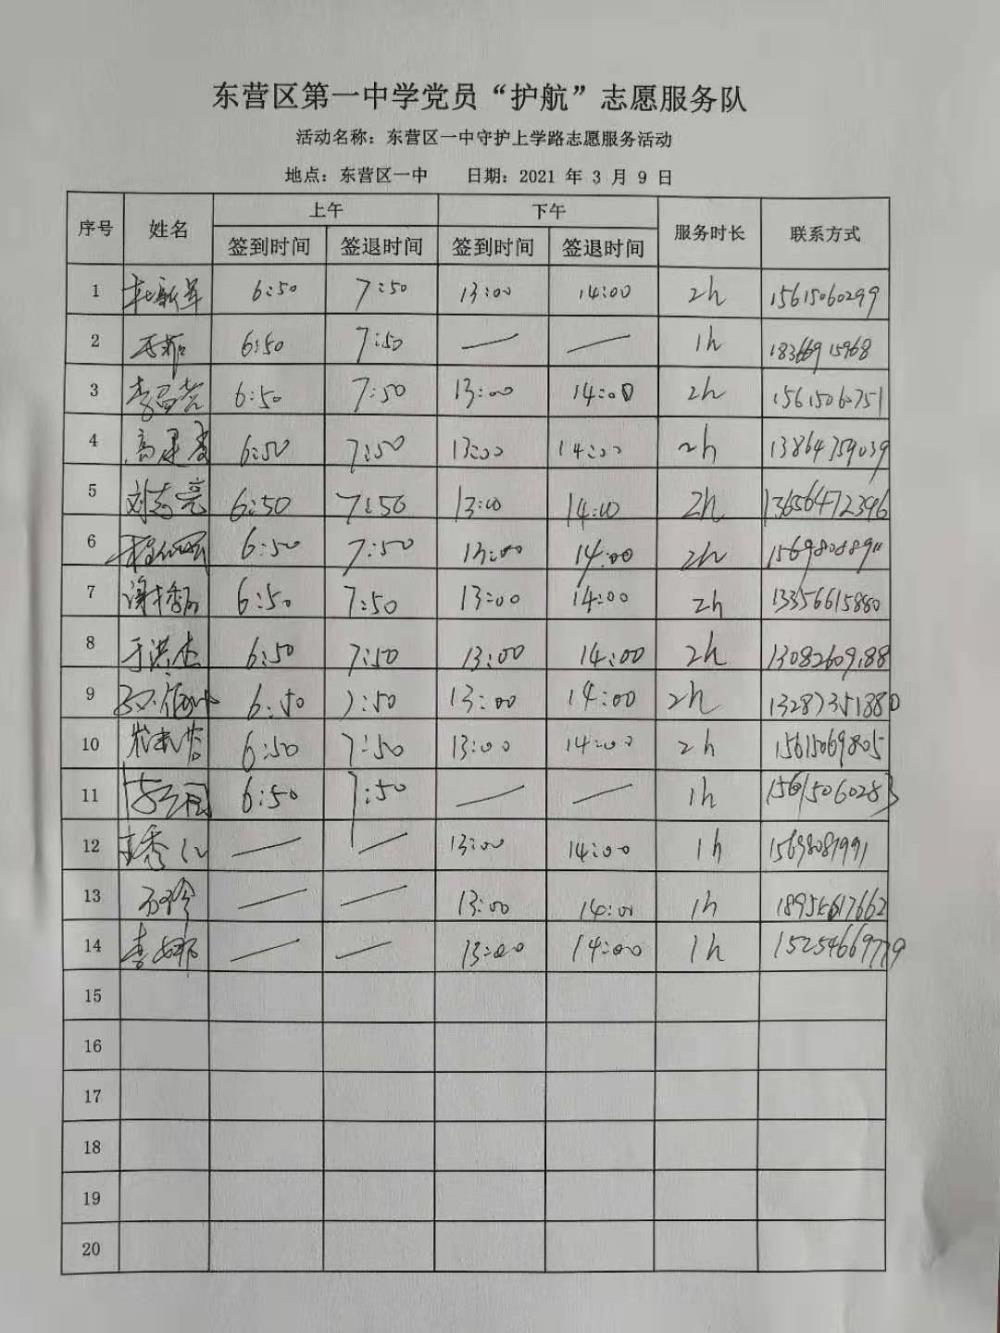 东营区第一中学党员“护航”志愿服务队
活动名称：东营区一中守护上学路志愿服务活动
地点：东营区一中 日期：2021 年 3 月 9 日
序号 姓名 上午 下午 服务时长 联系方式
签到时间 签退时间 签到时间 签退时间
1 6:50 7:50 13:00 14:00 2h 15615060299
2 6:50 7:50 — — 1h
3 6:50 7:50 13:00 14:00 2h 15615060751
4 高建 6:50 7:50 13:00 14:00 2h 13864759039
5 刘志亮 6:50 7:50 13:00 14:00 2h 13656472396
6 6:50 7:50 13:00 14:00 2h
7 6:50 7:50 13:00 14:00 2h 13356615880
8 于洪杰 6:50 7:50 13:00 14:00 2h 13082609188
9 6:50 7:50 13:00 14:00 2h 13287351880
10 6:50 7:50 13:00 14:00 2h 15615069805
11 6:50 7:50 — — 1h 15615060283
12 — — 13:00 14:00 1h
13 — — 13:00 14:00 1h
14 — — 13:00 14:00 1h
15
16
17
18
19
20